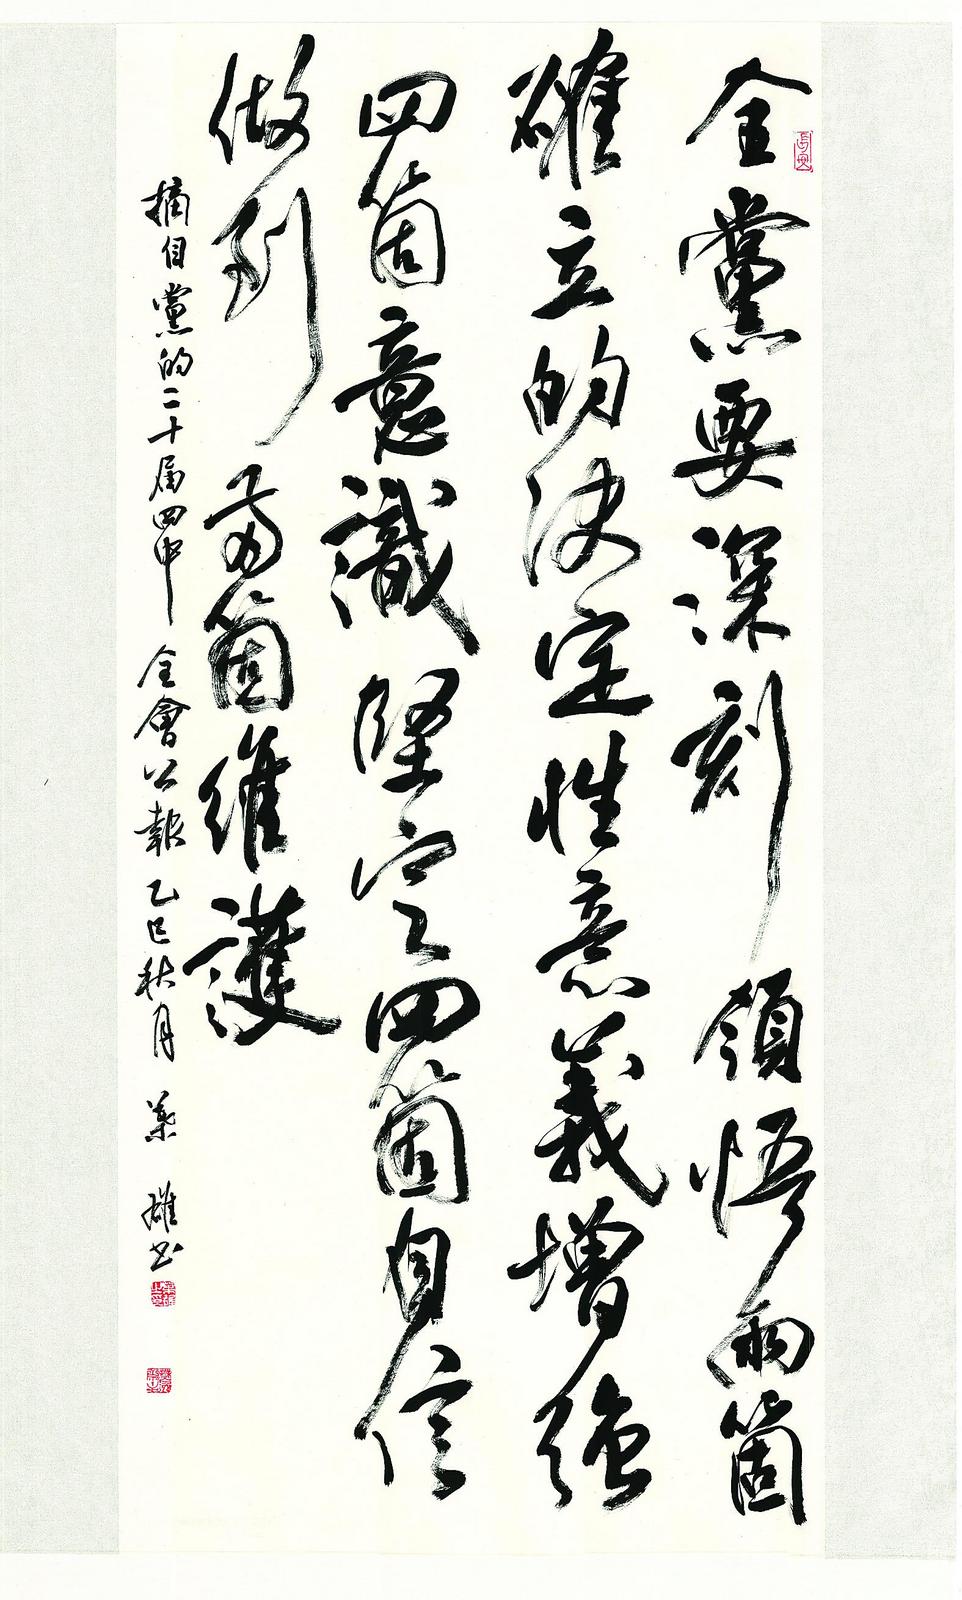 全黨要深刻領悟兩箇
確立的決定性意義增強
四箇意識堅定四箇自信
做到兩箇維護
摘自黨的二十届四中全會公報乙巳秋月葉雄书